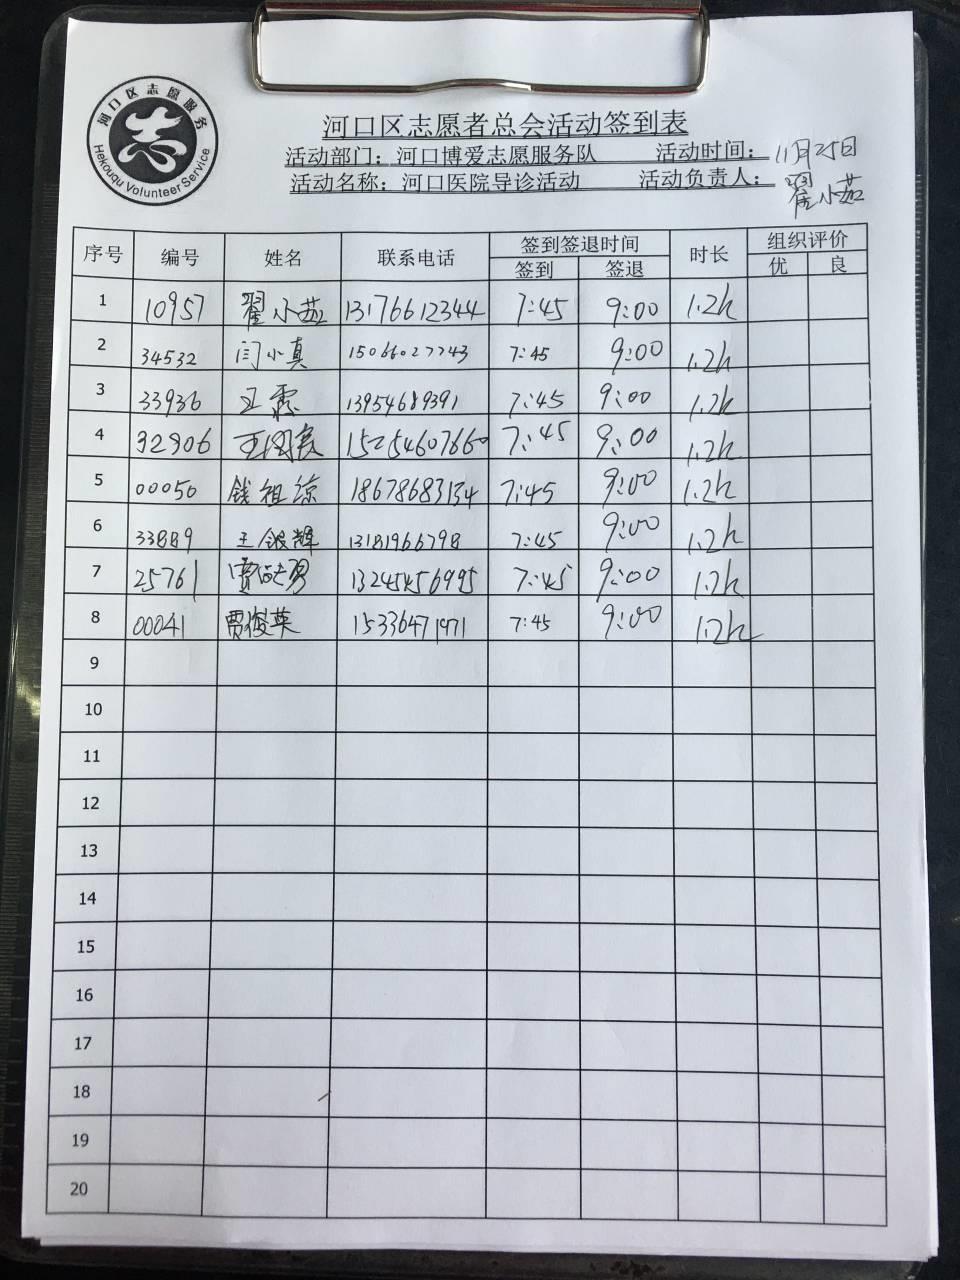 河口区志愿服务
志
Hekouqu Volunteer Service
河口区志愿者总会活动签到表
活动部门：河口博爱志愿服务队 活动时间：11月25日
活动名称：河口医院导诊活动 活动负责人：翟小茹
序号 编号 姓名 联系电话 签到签退时间 时长 组织评价
签到 签退 优 良
1 10957 翟小茹 13176612344 7:45 9:00 1.2h
2 34532 闫小真 15066027743 7:45 9:00 1.2h
3 33936 王霞 13954689391 7:45 9:00 1.2h
4 32906 15254607660 7:45 9:00 1.2h
5 00050 钱祖琼 18678683134 7:45 9:00 1.2h
6 33889 王银辉 13181966798 7:45 9:00 1.2h
7 25761 13245456995 7:45 9:00 1.2h
8 00041 贾俊英 15336471971 7:45 9:00 1.2h
9
10
11
12
13
14
15
16
17
18
19
20